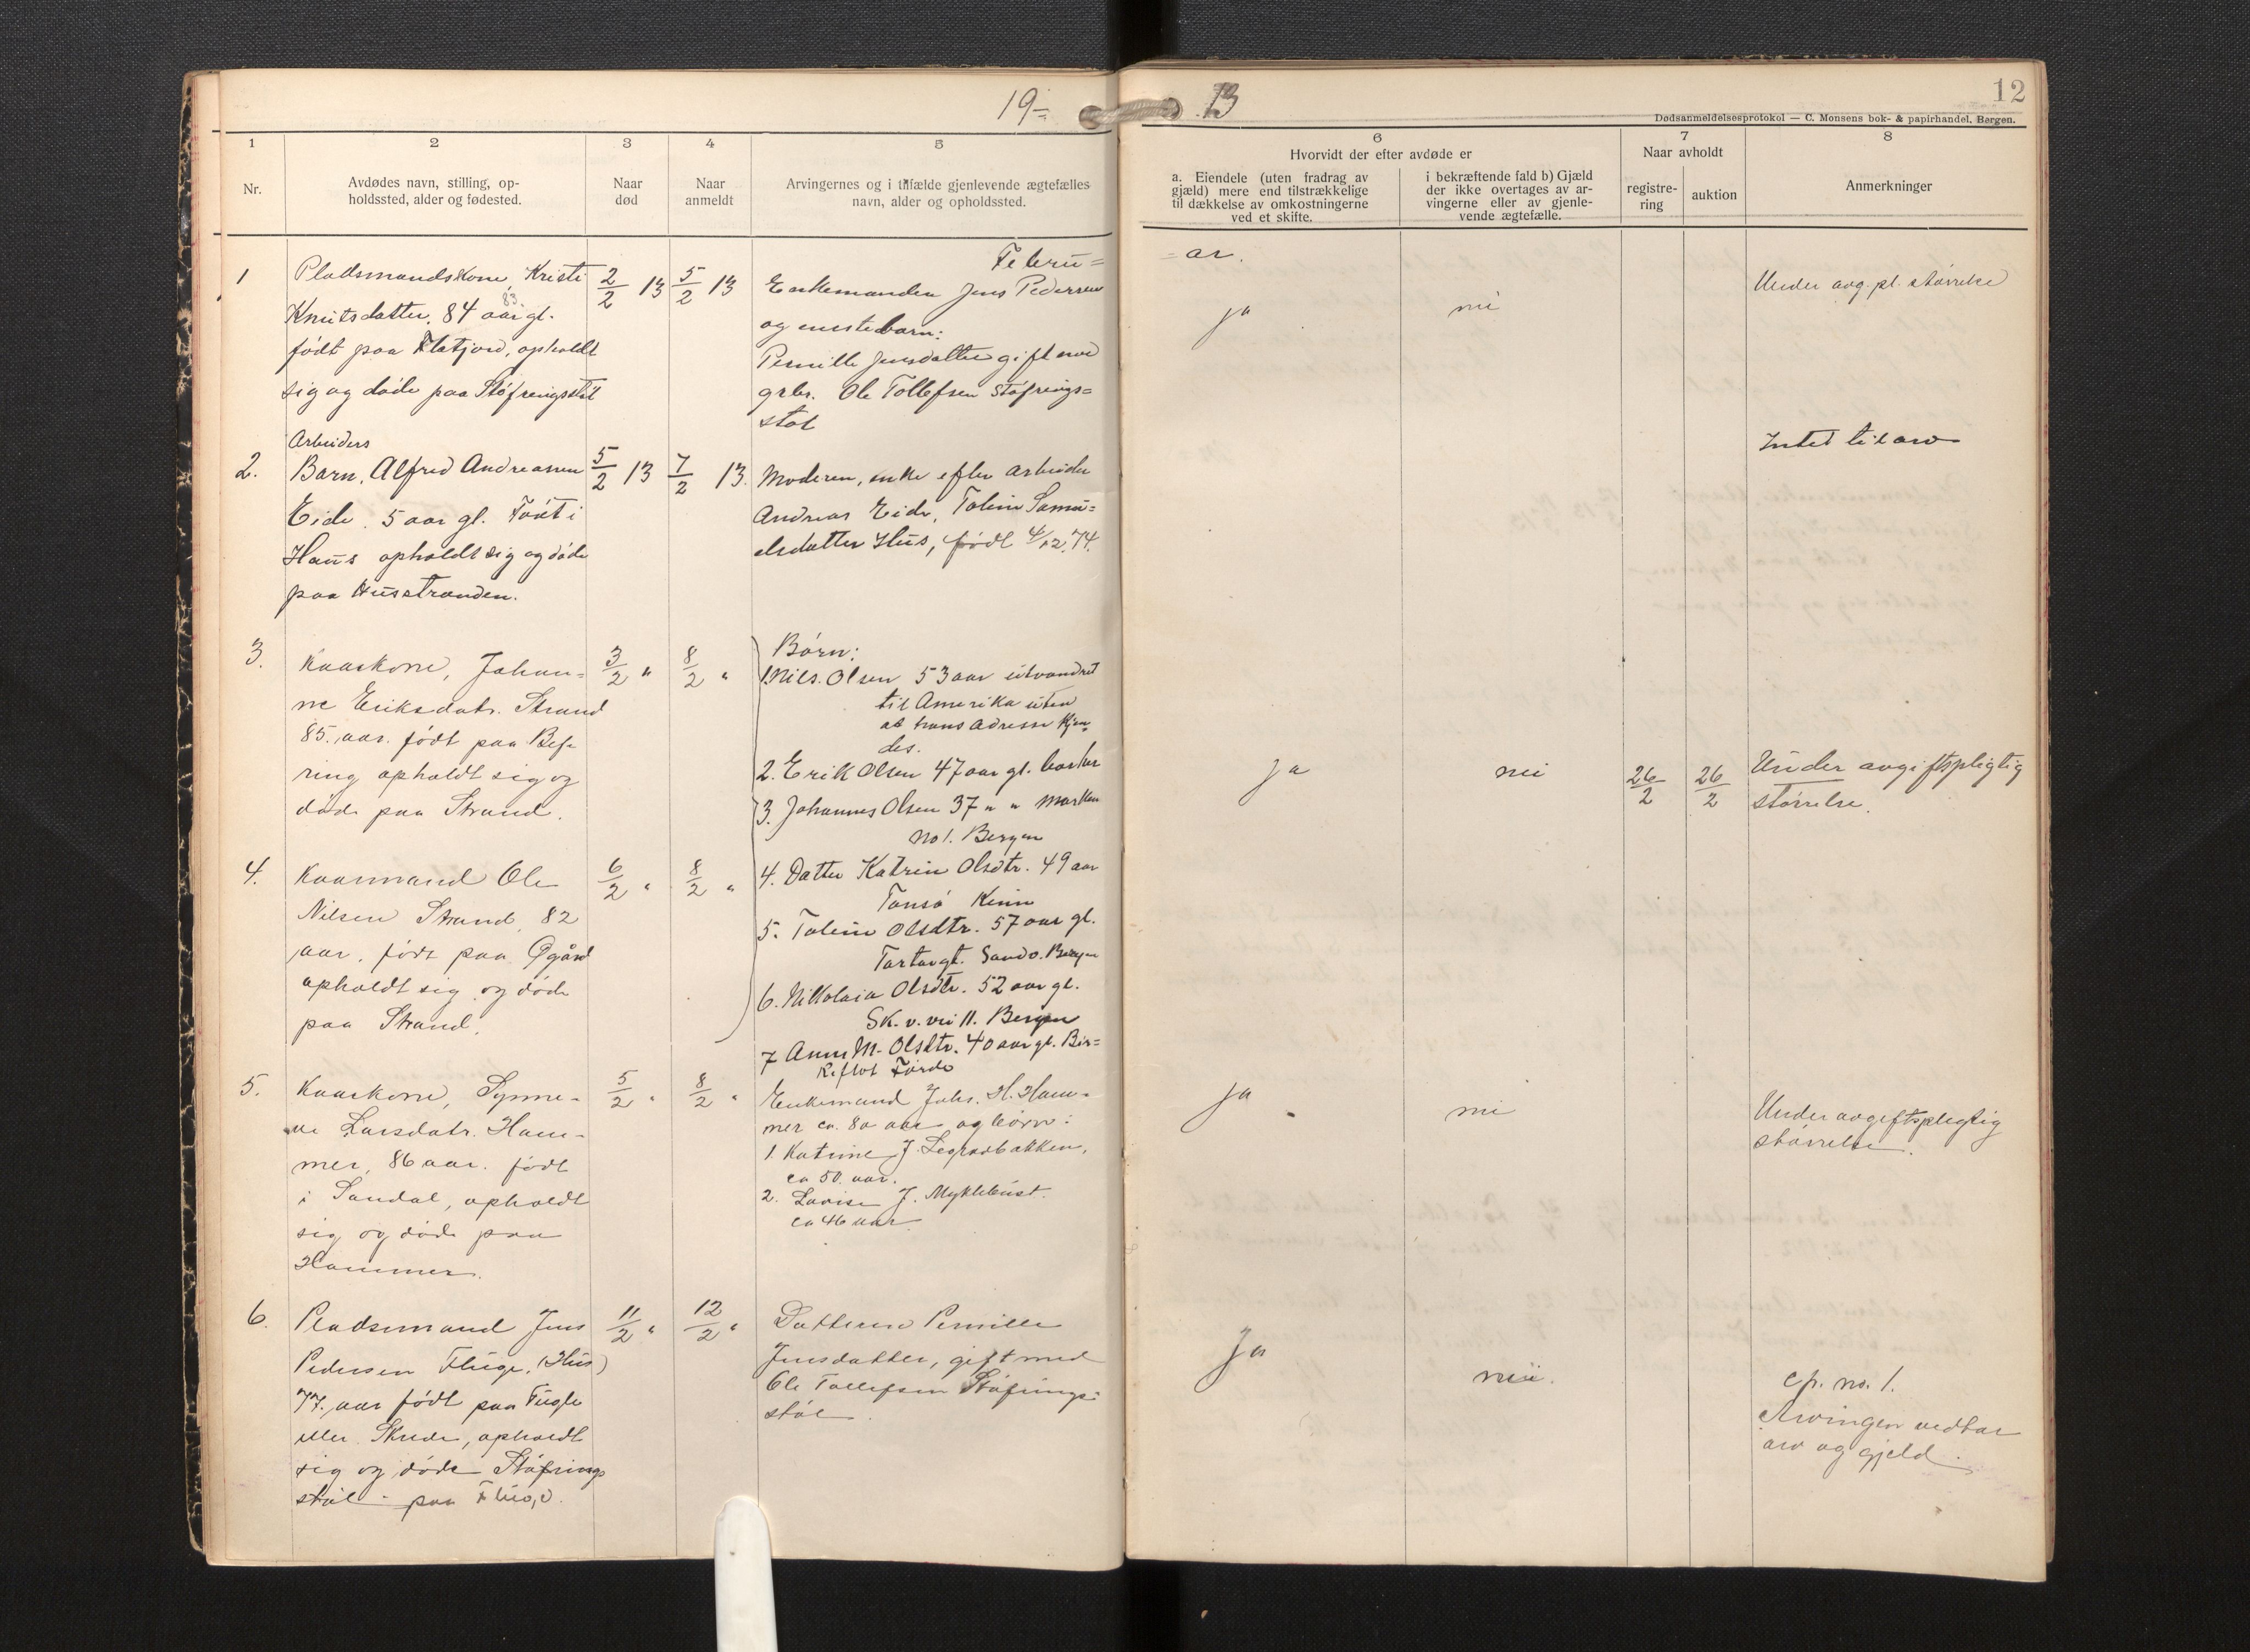 19-
13
12
Dødsanmeldelsesprotokol — C. Monsens bok- & papirhandel, Bergen.
1
2
3
4
5
6
7
8
Nr.
Avdødes navn, stilling, op-
holdssted, alder og fødested.
Naar
død
Naar
anmeldt
Arvingernes og i tilfælde gjenlevende ægtefælles
navn, alder og opholdssted.
Hvorvidt der efter avdøde er
a. Eiendele (uten fradrag av
gjæld) mere end tilstrækkelige
til dækkelse av omkostningerne
ved et skifte.
i bekræftende fald b) Gjæld
der ikke overtages av ar-
vingerne eller av gjenle-
vende ægtefælle.
Naar avholdt
registre-
ring
auktion
Anmerkninger
Febru=
=ar.
1
Pladsmandskone, Kristi
Knutsdatter, 84 aar gl.
83.
født paa Flatjord, opholdt
sig og døde paa Støfringsstøl
2/2 13
5/2 13
Enkemanden Jens Pedersen
og eneste barn:
Pernille Jensdatter gift med
grbr. Ole Tollefsen Støfrings=
støl
ja
nei
Under avg.pl. størrelse
2.
Arbeiders
Barn, Alfred Andreassen
Eide. 5 aar gl. Født i
Haus opholdt sig og døde
paa Husstranden.
5/2 13
7/2 13.
Moderen, enke efter arbeider
Andreas Eide, Toline Samu=
elsdatter Hus, født 4/12 74.
Intet til arv
3.
Kaarkone, Johan=
ne Eriksdatr. Strand
85. aar. født paa Bef=
ring opholdt sig og
døde paa Strand.
3/2 "
8/2 "
Børn:
1. Nils. Olsen 53 aar utvandret
til Amerika uten
at hans adresse kjen=
des.
2. Erik Olsen 47 aar gl.
3. Johannes Olsen 37 " " Marken
no 1. Bergen
4. Datter Katrine Olsdtr. 49 aar
Tansø Kinn
5. Toline Olsdtr. 57 aar gl.
Sandv. Bergen
6. Nikolaia Olsdtr. 52 aar gl.
Sk. v. vei 11. Bergen
7 Anne M. Olsdtr. 40 aar gl. Bir=
keflot Førde
ja
nei
26/2
26/2
Under avgiftspligtig
størrelse.
4.
Kaarmand Ole
Nilsen Strand, 82
aar, født paa Øgård
opholdt sig og døde
paa Strand.
6/2 "
8/2 "
5.
Kaarkone, Synne=
ve Larsdatr. Ham=
mer, 86 aar. født
i Sandal, opholdt
sig og døde paa
Hammer.
5/2 "
8/2 "
Enkemand Johs. H. Ham=
mer ca. 80 aar og børn:
1. Katrine J. Legredbakken,
ca 50. aar.
2. Lovise J. Myklebust.
ca 46 aar
ja
nei
Under avgiftspligtig
størrelse.
6.
Pladsmand Jens
Pedersen Fluge. (Hus)
77. aar født paa Fugle
eller Skrede, opholdt
sig og døde Støfrings
støl - paa
11/2 "
12/2 "
Datteren Pernille
Jensdatter, gift med
Ole Tollefsen Støfrings=
støl
Ja
nei.
cfr. no. 1.
Arvingen vedtar
arv og gjeld.